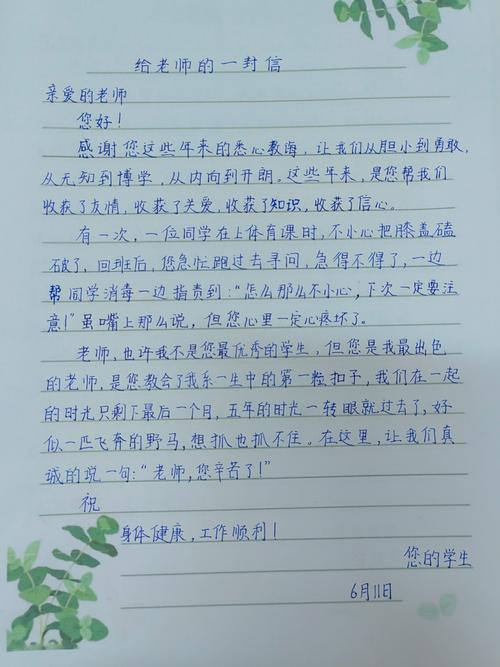 给老师的一封信
亲爱的老师
您好！
感谢您这些年来的悉心教诲，让我们从胆小到勇敢，
从无知到博学，从内向到开朗。这些年来，是您帮我们
收获了友情，收获了关爱，收获了知识，收获了信心。
有一次，一位同学在上体育课时，不小心把膝盖磕
破了，回班后，您急忙跑过去寻问，急得不得了，一边
帮同学消毒一边指责到：“怎么那么不小心，下次一定要注
意！”虽嘴上那么说，但您心里一定心疼坏了。
老师，也许我不是您最优秀的学生，但您是我最出色
的老师，是您教会了我系一生中的第一粒扣子，我们在一起
的时光只剩下最后一个月，五年的时光一转眼就过去了，好
似一匹飞奔的野马，想抓也抓不住。在这里，让我们真
诚的说一句：“老师，您辛苦了！”
祝
身体健康，工作顺利！
您的学生
6月11日